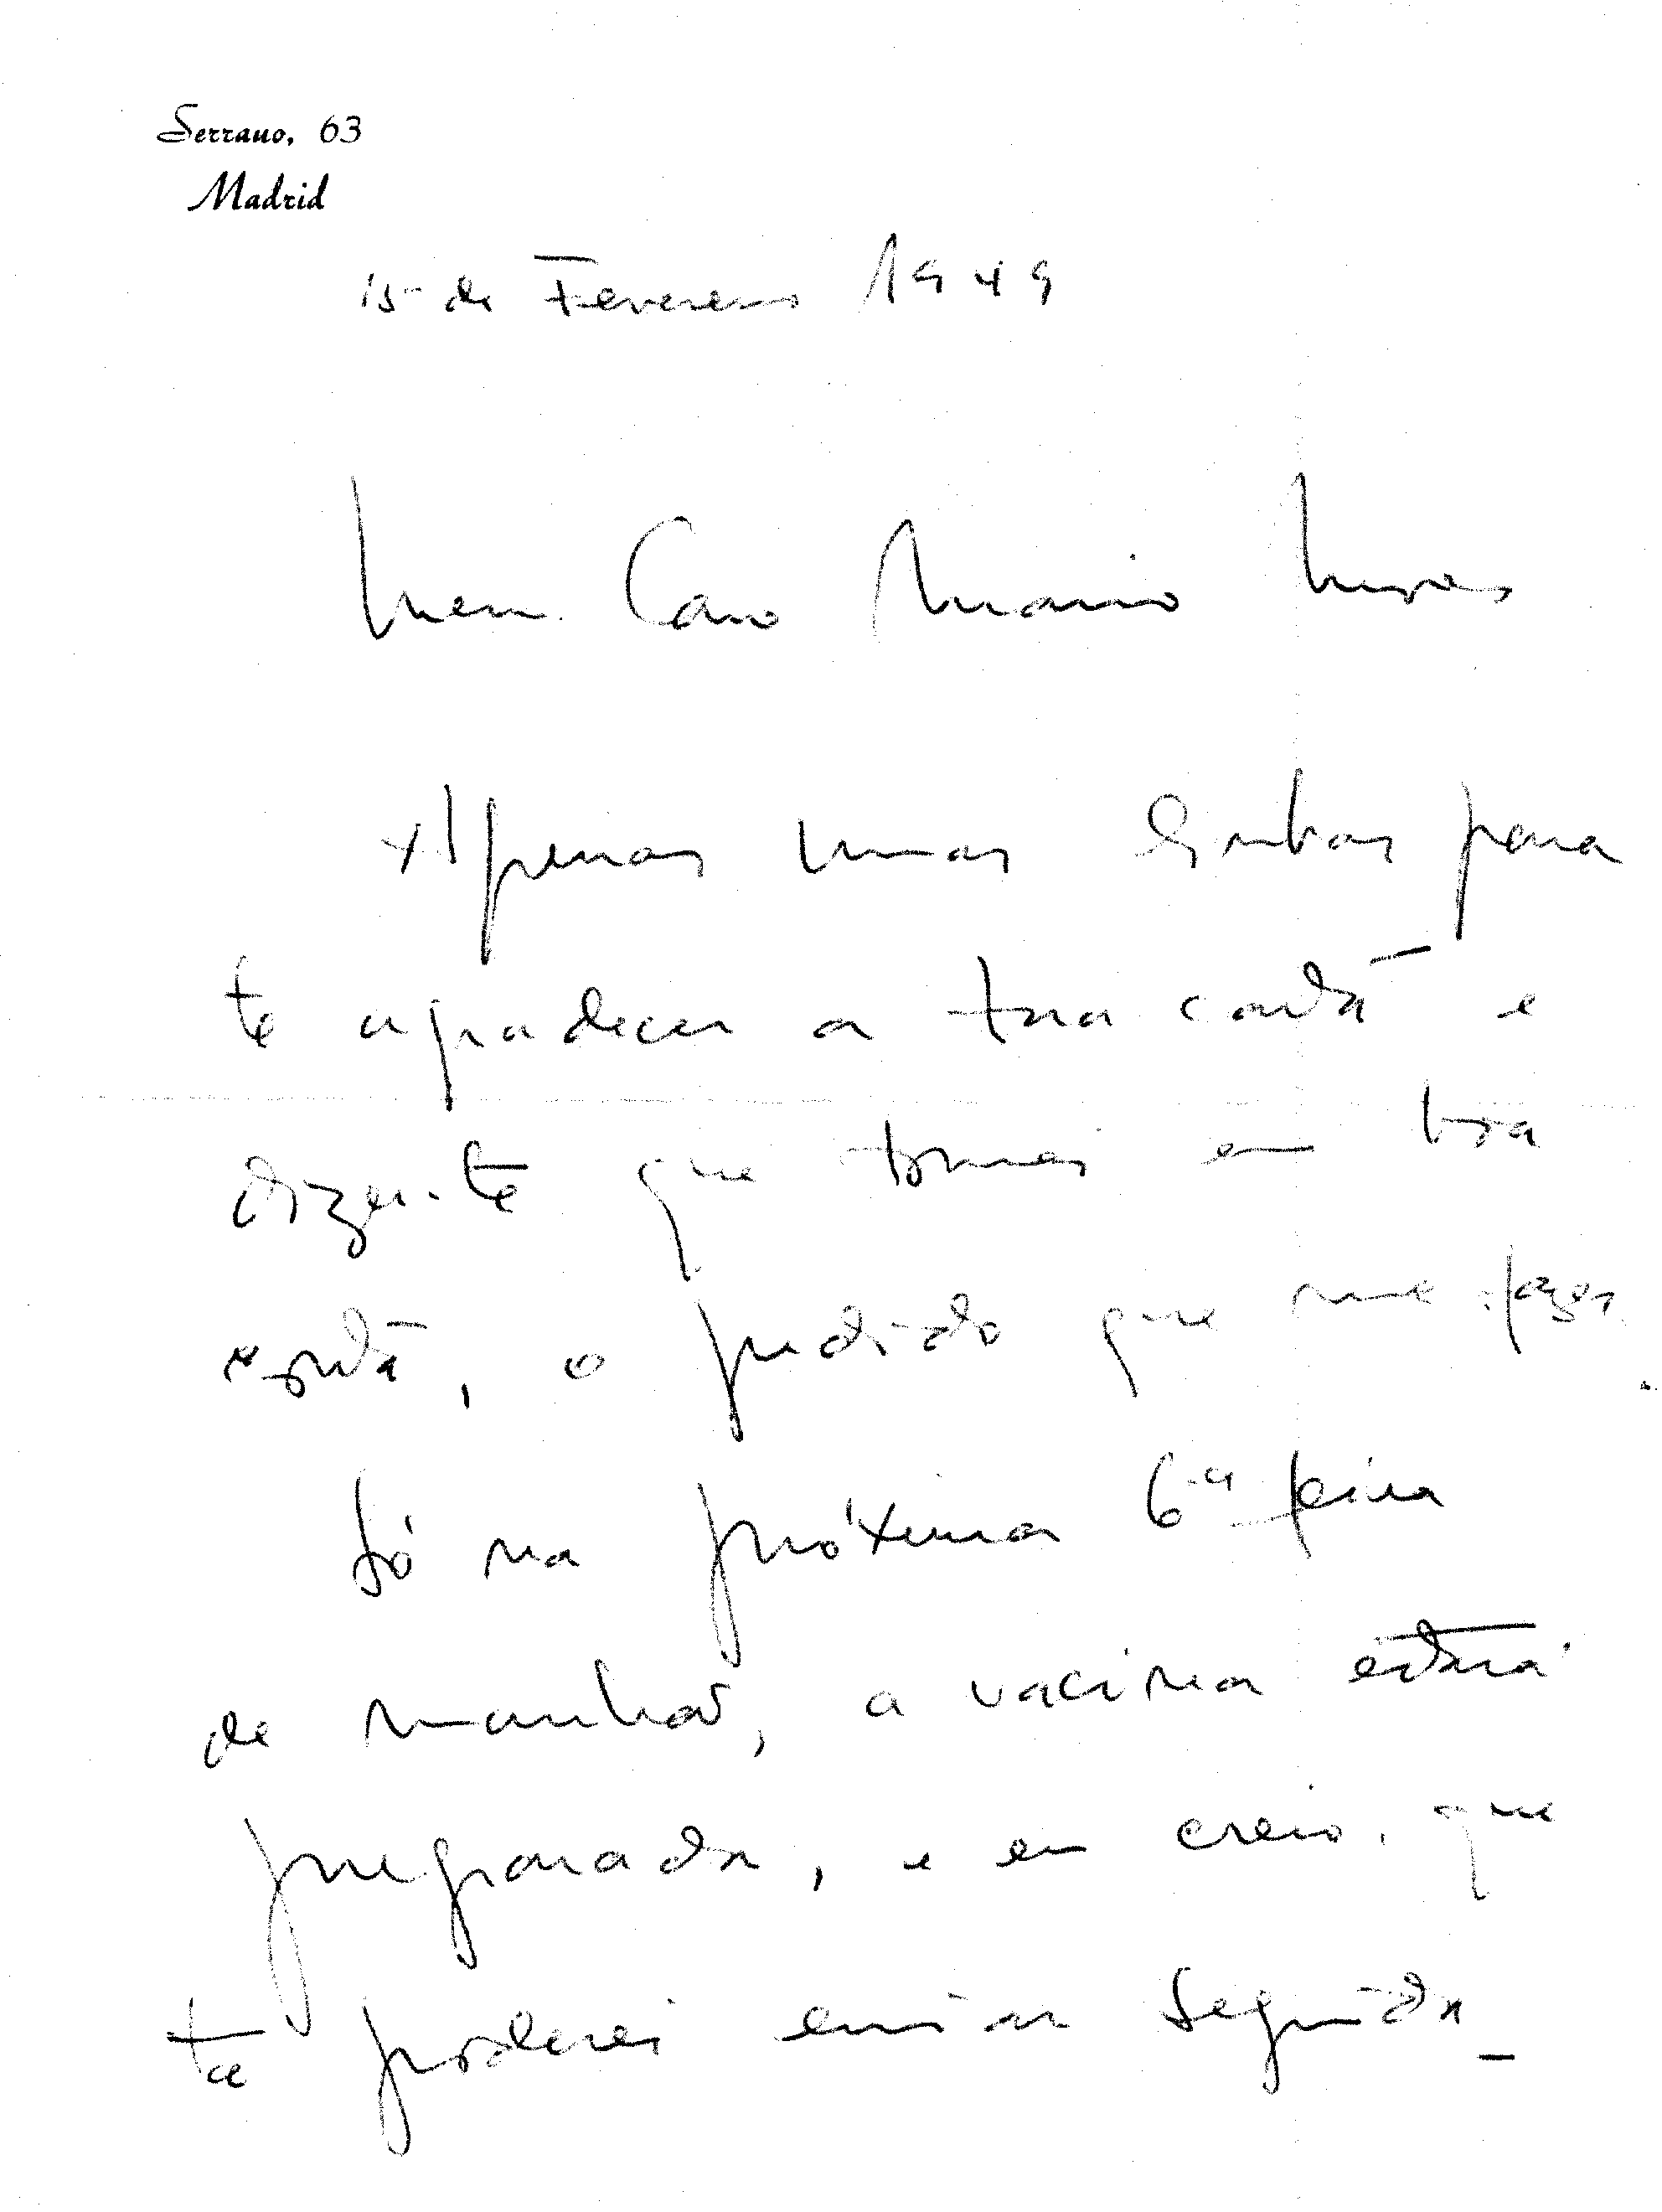 Serrano, 63
Madrid
15 de Fevereiro 1949
Meu Caro Mario
Apenas umas linhas para
te agradecer a tua carta e
dizer-te que tomei em boa
conta, o pedido que me fazes.
Só na próxima 6ª feira
de manhã, a vacina estará
preparada, e eu creio que
te poderei enviar seguida_